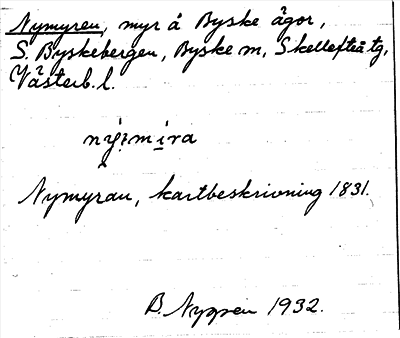 Nymyren, myr å Byske ägor,
S. Byskebergen, Byske sn, Skellefteå tg,
Västerb. l.
nỳ:mı̲ra
Nymyran, kartbeskrivning 1831.
B. Nygren 1932.